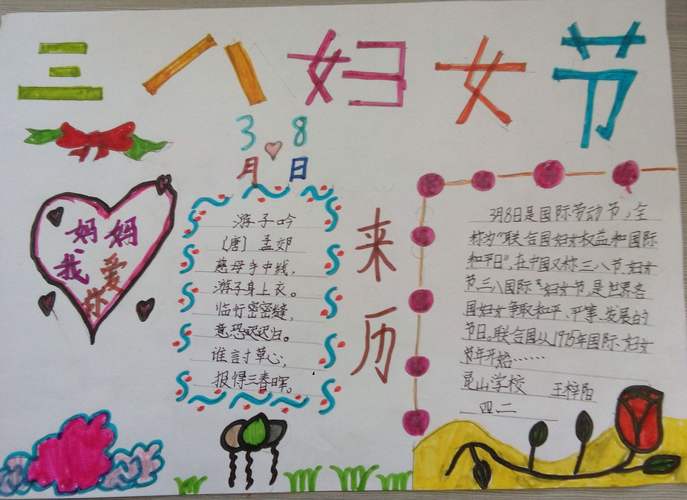 三八妇女节
3 8
月 日
妈妈
我爱
你
游子吟
(唐) 孟郊
慈母手中线，
游子身上衣。
临行密密缝，
意恐迟迟归。
谁言寸草心，
报得三春晖。
来历
3月8日是国际劳动节，全
称为"联合国妇女权益和国际
和平日"，在中国又称三八节、妇女
节、三八国际妇女节，是世界各
国妇女争取和平、平等、发展的
节日。联合国从1975年国际妇女
年开始……
昆山学校 王梓阳
四二